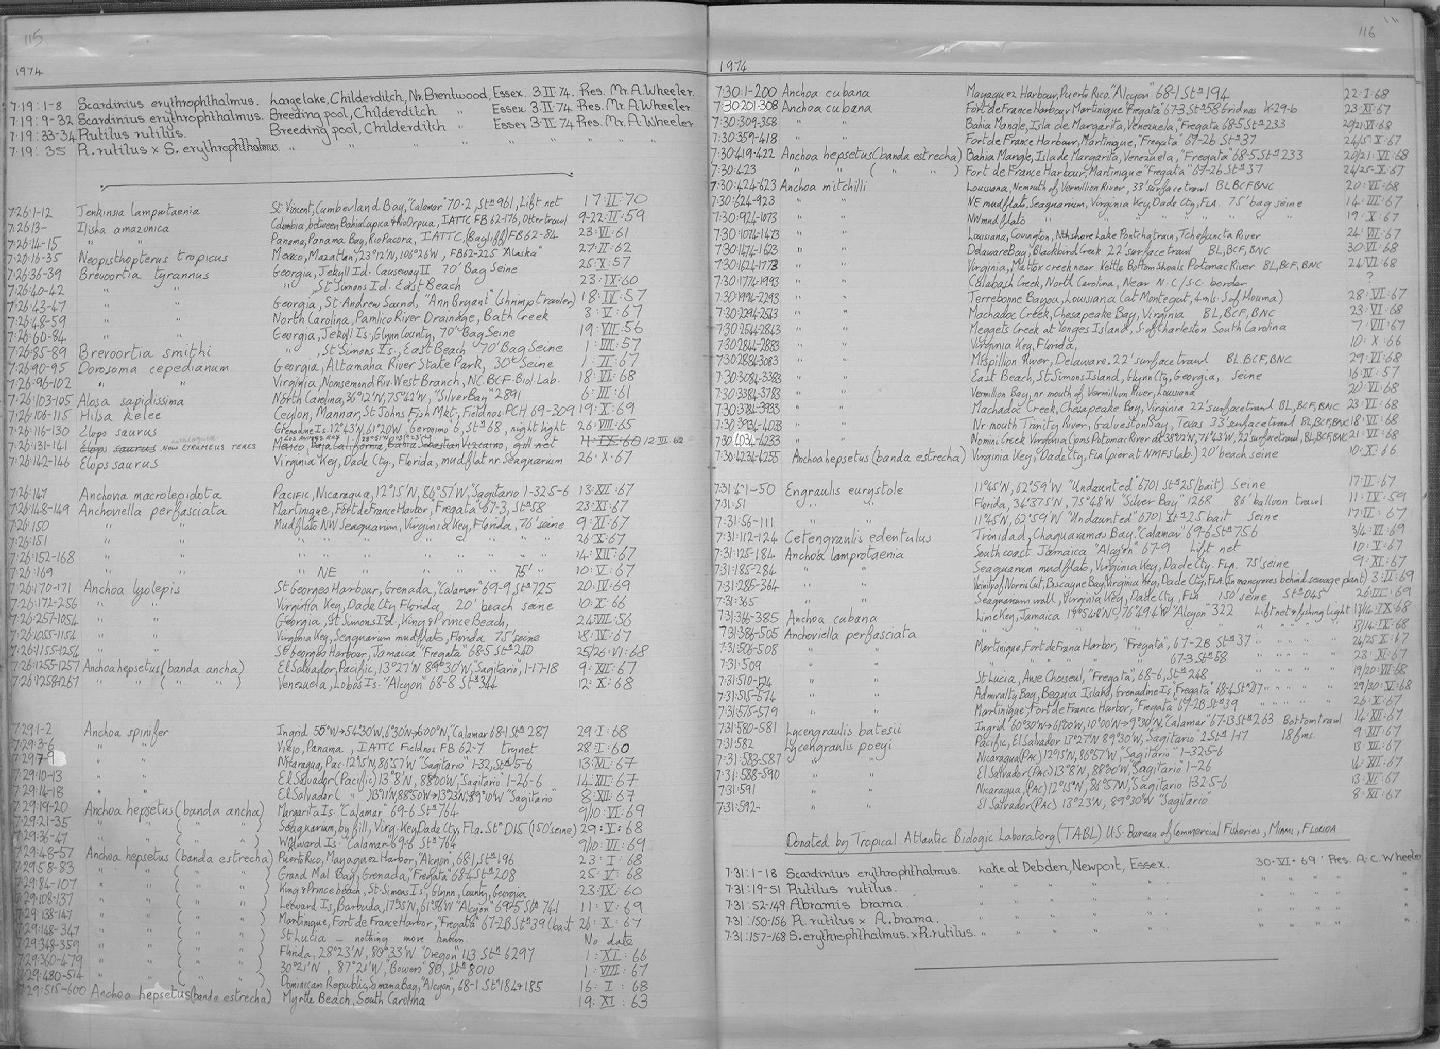 115
1974
7·19:1-8 Scardinius erythrophthalmus. Large lake, Childerditch, Nr. Brentwood, Essex 3·II·74 Pres. Mr. A. Wheeler
7·19:9-32 Scardinius erythrophthalmus. Breeding pool, Childerditch " Essex 3·II·74 Pres. Mr. A. Wheeler
7·19:33-34 Rutilus rutilus. Breeding pool, Childerditch " Essex 3·II·74 Pres. Mr. A. Wheeler
7·19:35 R. rutilus x S. erythrophthalmus " " " " " " "
7·26:1-12 Jenkinsia lamprotaenia St Vincent, Cumberland Bay, "Calamar" 70-2, Stn 961, Lift net 17·II·70
7·26:13- Ilisha amazonica Colombia, between Bahia Cupica & Rio Drpua, IATTC FB 62-176, Otter trawl 9-22·II·59
7·26:14-15 " " Panama, Panama Bay, Rio Pacora, IATTC, (Bayliff) FB 62-84 23·VI·61
7·26:16-35 Neopisthopterus tropicus Mexico, Mazatlan, 23°12'N, 106°26'W, FB62-225 "Alaska" 27·II·62
7·26:36-39 Brevoortia tyrannus Georgia, Jekyll Id. Causeway II 70' Bag Seine 25·X·57
7·26:40-42 " " " , St Simons Id. East Beach 23·IX·60
7·26:43-47 " " Georgia, St Andrew Sound, "Ann Bryant" (shrimp trawler) 18·IV·57
7·26:48-59 " " North Carolina, Pamlico River Drainage, Bath Creek 3·V·67
7·26:60-84 " " Georgia, Jekyll Is. Glynn County, 70' Bag Seine 19·VII·56
7·26:85-89 Brevoortia smithi " , St Simons Is., East Beach 70' Bag Seine 1·III·57
7·26:90-95 Dorosoma cepedianum Georgia, Altamaha River State Park, 30' Seine 1·II·67
7·26:96-102 " " Virginia, Nansemond Riv. West Branch, NC BCF-Biol. Lab. 18·VI·68
7·26:103-105 Alosa sapidissima North Carolina, 36°12'N, 75°42'W, "Silver Bay" 2891 6·III·61
7·26:106-115 Hilsa kelee Ceylon, Mannar, St Johns Fish Mkt, Field nos PCH 69-309 19·X·69
7·26:116-130 Elops saurus Grenadine Is. 12°43'N, 61°20'W, Geronimo 6, Stn 68, night light 26·VIII·65
7·26:131-141 Elops saurus NOW ETRUMEUS TERES Mexico, Baja California, Bahia Sebastian Vizcaino, gill net 4·IX·60 12·VII·62
7·26:142-146 Elops saurus Virginia Key, Dade Cty, Florida, mudflat nr. Seaquarium 26·X·67
7·26:147 Anchovia macrolepidota Pacific, Nicaragua, 12°15'N, 86°57'W, "Sagitario" 1-32·5-6 13·XII·67
7·26:148-149 Anchoviella perfasciata Martinique, Fort de France Harbor, "Fregata" 67-3, Stn 58 23·XI·67
7·26:150 " " Mudflats NW Seaquarium, Virginia Key, Florida, 76' seine 9·XI·67
7·26:151 " " " " " " " " 26·X·67
7·26:152-168 " " " " " " " " 14·XII·67
7·26:169 " " " NE " " " 75' " 10·V·67
7·26:170-171 Anchoa lyolepis St Georges Harbour, Grenada, "Calamar" 69-9, Stn 725 20·IV·69
7·26:172-256 " " Virginia Key, Dade Cty Florida, 20' beach seine 10·X·66
7·26:257-1054 " " Georgia, St Simons Id., King & Prince Beach, 24·VIII·56
7·26:1055-1154 " " Virginia Key, Seaquarium mudflats, Florida 75' seine 18·IV·67
7·26:1155-1254 " " St Georges Harbour, Jamaica "Fregata" 68-5 Stn 240 25/26·VI·68
7·26:1255-1257 Anchoa hepsetus (banda ancha) El Salvador, Pacific, 13°27'N 89°30'W, "Sagitario", 1-17-18 9·XII·67
7·26:1258-1267 " " ( " " ) Venezuela, Lobos Is. "Alcyon" 68-8 Stn 344 12·X·68
7·29:1-2 Anchoa spinifer Ingrid 55°W→54°30'W, 6°30'N→6°00'N, "Calamar" 68-1 Stn 287 29·I·68
7·29:3-6 " " Viejo, Panama, IATTC Field nos FB 62-7 trynet 28·I·60
7·29:7-9 " " Nicaragua, Pac. 12°15'N, 86°57'W "Sagitario" 1-32, Stn 5-6 13·XII·67
7·29:10-13 " " El Salvador (Pacific) 13°8'N, 88°30'W, "Sagitario" 1-26-6 14·XII·67
7·29:14-18 " " El Salvador ( " ) 13°11'N, 88°50'W→13°23'N, 89°10'W "Sagitario" 8·XII·67
7·29:19-20 Anchoa hepsetus (banda ancha) Margarita Is. "Calamar" 69-6 Stn 764 9/10·VI·69
7·29:21-35 " " ( " " ) Seaquarium, by hill, Virg. Key, Dade Cty, Fla. Stn D15 (150' seine) 29·X·68
7·29:36-47 " " ( " " ) Windward Is. "Calamar" 69-6 Stn 764 9/10·VII·69
7·29:48-57 Anchoa hepsetus (banda estrecha) Puerto Rico, Mayaguez Harbor, "Alcyon", 68-1, Stn 196 23·I·68
7·29:58-83 " " ( " " ) Grand Mal Bay, Grenada, "Fregata" 68-4 Stn 208 25·V·68
7·29:84-107 " " ( " " ) King & Prince beach, St Simons Is., Glynn, County, Georgia 23·IX·60
7·29:108-137 " " ( " " ) Leeward Is, Barbuda, 17°35'N, 61°46'W "Alcyon" 69-5 Stn 741 11·V·69
7·29:138-147 " " ( " " ) Martinique, Fort de France Harbor, "Fregata" 67-2B Stn 39 (bait 26·X·67
7·29:148-347 " " ( " " ) St Lucia – nothing more known No date
7·29:348-359 " " ( " " ) Florida, 28°23'N, 80°33'W "Oregon" 113 Stn 6297 1·XI·66
7·29:360-479 " " ( " " ) 30°21'N, 87°21'W, "Bowers" 80, Stn 8010 1·VIII·67
7·29:480-514 " " ( " " ) Dominican Republic, Samana Bay, "Alcyon", 68-1 Stn 184 & 185 16·I·68
7·29:515-600 Anchoa hepsetus (banda estrecha) Myrtle Beach, South Carolina 19·XI·63
116
1974
7·30:1-200 Anchoa cubana Mayaguez Harbour, Puerto Rico, "Alcyon" 68-1 Stn 194 22·I·68
7·30:201-308 Anchoa cubana Fort de France Harbour, Martinique "Fregata" 67-3 Stn 58 Grid nos K 29-6 23·XI·67
7·30:309-358 " " Bahia Mangle, Isla de Margarita, Venezuela, "Fregata" 68-5 Stn 233 20/21·VI·68
7·30:359-418 " " Fort de France Harbour, Martinique, "Fregata" 67-2b Stn 37 24/25·X·67
7·30:419-422 Anchoa hepsetus (banda estrecha) Bahia Mangle, Isla de Margarita, Venezuela, "Fregata" 68-5 Stn 233 20/21·VI·68
7·30:423 " " ( " " ) Fort de France Harbour, Martinique "Fregata" 67-2b Stn 37 24/25·X·67
7·30:424-623 Anchoa mitchilli Louisiana, Ne mouth of Vermillion River, 33' surface trawl BL, BCF, BNC 20·VI·68
7·30:624-923 " " NE mudflats, Seaquarium, Virginia Key, Dade Cty, Fla. 75' bag seine 14·III·67
7·30:924-1073 " " NW mudflats " " " " " " 19·X·67
7·30:1074-1473 " " Louisiana, Covington, Nth shore Lake Pontchatrain, Tchefuncta River 24·VII·67
7·30:1474-1623 " " Delaware Bay, Blackbird Creek 22' surface trawl BL, BCF, BNC 30·VI·68
7·30:1624-1773 " " Virginia, Mattox creek near Kettle Bottom Shoals Potomac River BL, BCF, BNC 24·VI·68
7·30:1774-1993 " " Calabash Creek, North Carolina, Near N.C/S.C. border ?
7·30:1994-2293 " " Terrebonne Bayou, Louisiana (at Montegut, 4 mls. S of Houma) 28·VI·67
7·30:2294-2513 " " Machadoc Creek, Chesapeake Bay, Virginia BL, BCF, BNC 23·VI·68
7·30:2544-2843 " " Meggets Creek at Yonges Island, S of Charleston South Carolina 7·VII·67
7·30:2844-2883 " " Virginia Key, Florida, 10·X·66
7·30:2884-3083 " " Mispillion River, Delaware. 22' surface trawl BL, BCF, BNC 29·VI·68
7·30:3084-3383 " " East Beach, St Simons Island, Glynn Cty, Georgia, Seine 16·IV·57
7·30:3384-3783 " " Vermillion Bay, nr mouth of Vermillion River, Louisiana 20·VI·68
7·30:3784-3933 " " Machadoc Creek, Chesapeake Bay, Virginia 22' surface trawl BL, BCF, BNC 23·VI·68
7·30:3934-4033 " " Nr mouth Trinity River, Galveston Bay, Texas 33' surface trawl BL, BCF, BNC 18·VI·68
7·30:4034-4233 " " Nomini Creek Virginia (joins Potomac River at 38°12'N, 71°43'W, 22' surface trawl, BL, BCF, BNC 21·VI·68
7·30:4234-4255 Anchoa hepsetus (banda estrecha) Virginia Key, Dade Cty, Fla (pier at NMFS lab.) 20' beach seine 10·X·66
7·31:41-50 Engraulis eurystole 11°45'N, 62°59'W "Undaunted" 6701 Stn 25 (bait) Seine 17·II·67
7·31:51 " " Florida, 34°37'5"N, 75°48'W "Silver Bay" 1268 86' balloon trawl 11·IX·59
7·31:56-111 " " 11°45'N, 62°59'W "Undaunted" 6701 Stn 25 bait Seine 17·II·67
7·31:112-124 Cetengraulis edentulus Trinidad, Chaguaramas Bay, "Calamar" 69-6 Stn 756 3/4·VI·69
7·31:125-184 Anchoa lamprotaenia South coast Jamaica "Alcyon" 67-9 Lift net 10·X·67
7·31:185-284 " " Seaquarium mudflats, Virginia Key, Dade Cty. Fla. 75' seine 9·XI·67
7·31:285-364 " " Vicinity of Norris Cut, Biscayne Bay, Virginia Key, Dade Cty, Fla (in mangroves behind sewage plant) 3·II·69
7·31:365 " " Seaquarium wall, Virginia Key, Dade Cty, Fla 150 seine Stn 045 26·III·69
7·31:366-385 Anchoa cubana Lime Key, Jamaica 17°54'8"N, 76°49'4"W "Alcyon" 322 Lift net & fishing light 13/14·IX·68
7·31:386-505 Anchoviella perfasciata " " " " " 13/14·IX·68
7·31:506-508 " " Martinique, Fort de France Harbor, "Fregata", 67-2B Stn 37 " " " " 24/25·X·67
7·31:509 " " " " " " 67-3 Stn 58 " " " " 23·XI·67
7·31:510-514 " " St Lucia, Anse Choiseul, "Fregata", 68-6, Stn 248 " " " " 19/20·VII·68
7·31:515-574 " " Admiralty Bay, Bequia Island, Grenadine Is, "Fregata" 68-4 Stn 217 " " " " 29/30·V·68
7·31:575-579 " " Martinique, Fort de France Harbor, "Fregata" 67-2B Stn 39 " " " " 26·X·67
7·31:580-581 Lycengraulis batesii Ingrid 60°30'W→61°00'W, 10°00'N→9°30'N, "Calamar" 67-13 Stn 263 Bottom trawl 14·XII·67
7·31:582 Lycengraulis poeyi Pacific, El Salvador 13°27'N 89°30'W, "Sagitario" 2 Stn 1-17 18 fms. 9·XII·67
7·31:583-587 " " Nicaragua (Pac) 12°15'N, 86°57'W, "Sagitario" 1-32·5-6 13·XII·67
7·31:588-590 " " El Salvador (Pac) 13°8'N, 88°30'W, "Sagitario" 1-26 14·XII·67
7·31:591 " " Nicaragua, (Pac) 12°15'N, 86°57'W, Sagitario 1·32·5-6 13·XII·67
7·31:592- " " El Salvador (Pac) 13°23'N, 89°20'W "Sagitario" 8·XII·67
Donated by Tropical Atlantic Biologic Laboratory (TABL) U.S. Bureau of Commercial Fisheries, Miami, Florida
7·31:1-18 Scardinius erythrophthalmus. Lake at Debden, Newport, Essex. 30·VI·69 Pres. A.C. Wheeler
7·31:19-51 Rutilus rutilus. " " " " " "
7·31:52-149 Abramis brama. " " " " " "
7·31:150-156 R. rutilus x A. brama. " " " " " "
7·31:157-168 S. erythrophthalmus. x R. rutilus. " " " " " "